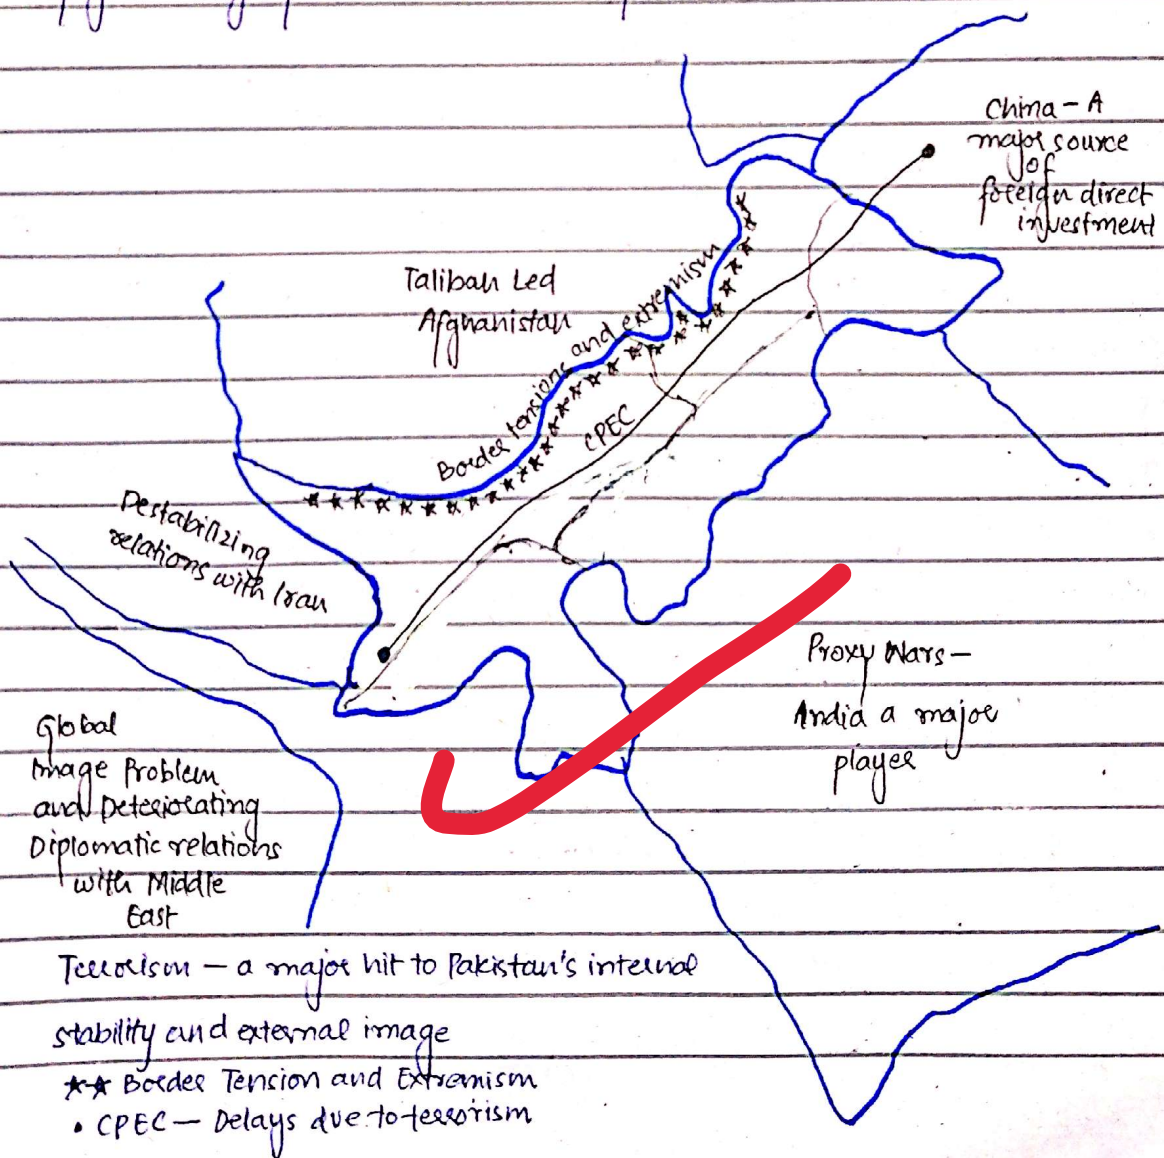 China - A
major source
of
foreign direct
investment
Taliban Led
Afghanistan
Border tensions and extremism
CPEC
Destabilizing
relations with Iran
Proxy Wars -
India a major
player
Global
Image Problem
and Deteriorating
Diplomatic relations
with Middle
East
Terrorism - a major hit to Pakistan's internal
stability and external image
** Border Tension and Extremism
• CPEC - Delays due to terrorism